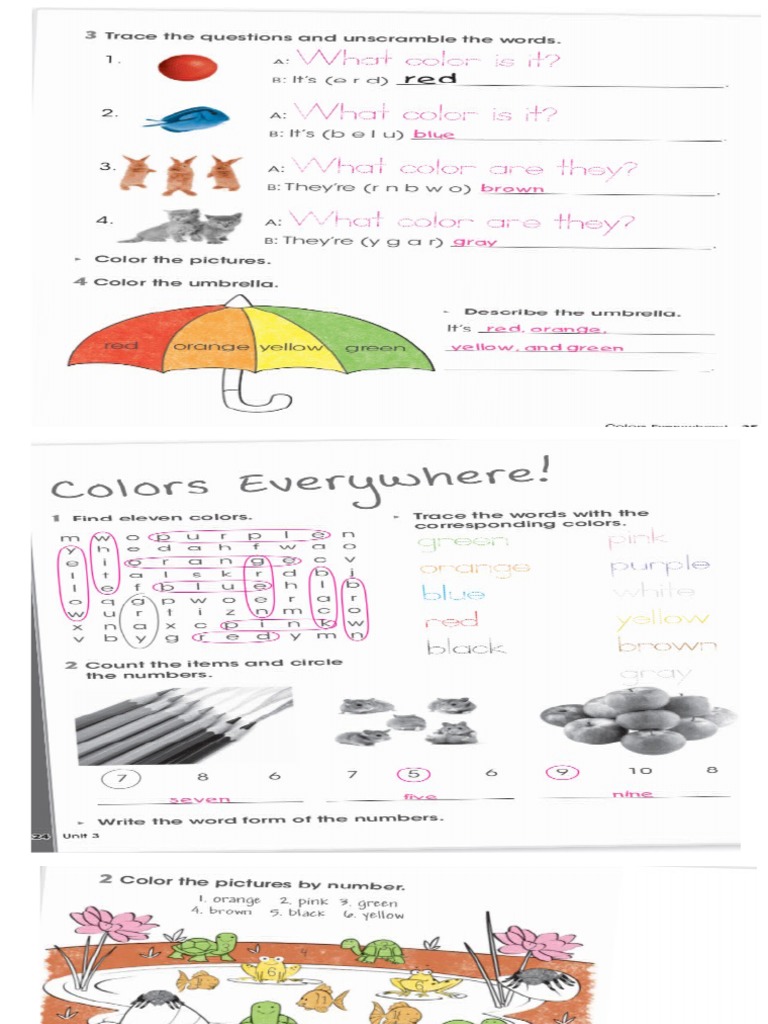 3 Trace the questions and unscramble the words.
1. A: What color is it?
B: It's (e r d) red.
2. A: What color is it?
B: It's (b e l u) blue.
3. A: What color are they?
B: They're (r n b w o) brown.
4. A: What color are they?
B: They're (y g a r) gray.
Color the pictures.
4 Color the umbrella.
red orange yellow green
Describe the umbrella.
It's red, orange,
yellow, and green.
Colors Everywhere! 25
Colors Everywhere!
1 Find eleven colors.
m w o p u r p l e n
y h e d a h f w a o
e i o r a n g e c v
l t a l s k r d b j
l e f b l u e h l b
o q g p w o e r a r
w u r t i z n m c o
x n a x c p i n k w
v b y g r e d y m n
Trace the words with the
corresponding colors.
green pink
orange purple
blue white
red yellow
black brown
gray
2 Count the items and circle
the numbers.
7 8 6
seven
7 5 6
five
9 10 8
nine
Write the word form of the numbers.
24 Unit 3
2 Color the pictures by number.
1. orange 2. pink 3. green
4. brown 5. black 6. yellow
4
6